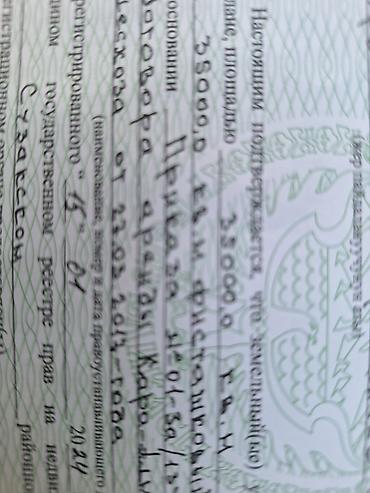 (жер пайдалануучунун аты)
Настоящим подтверждается, что земельный(ые)
плане, площадью 35000,0 кв.м
35000,0 кв.м фисташковый
основании Приказа №01-3а/13-
договора аренды Кара-Ал
лесхоза от 27.03.2013-года
(наименование, номер и дата правоустанавливающего
регистрированного "15" 04 2024
едином государственном реестре прав на недви
Сузакском районно